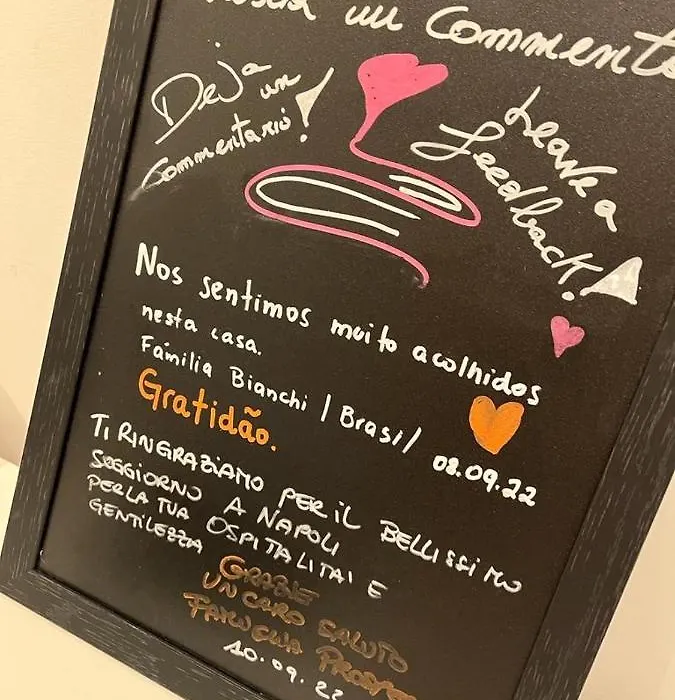 un Commento
Deja
un
commentario!
Leave a
feedback!
Nos sentimos muito acolhidos
nesta casa.
Familia Bianchi / Brasil
08.09.22
Gratidão.
TI RINGRAZIAMO PER IL BELLISSIMO
SOGGIORNO A NAPOLI
PER LA TUA OSPITALITAI E
GENTILEZZA
GRAZIE
UN CARO SALUTO
FAMIGLIA
10.09.22